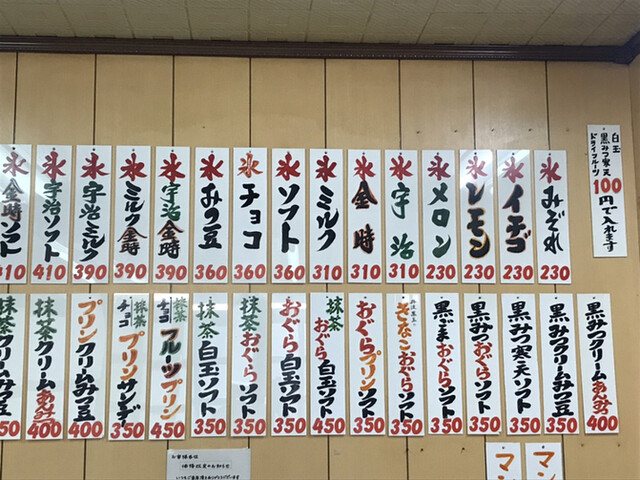 白玉
黒みつ寒天
ドライフルーツ
100円で入れます
氷みぞれ 230
氷イチゴ 230
氷レモン 230
氷メロン 230
氷宇治 310
氷金時 310
氷ミルク 310
氷ソフト 360
氷チョコ 360
氷みつ豆 360
氷宇治金時 390
氷ミルク金時 390
氷宇治ミルク 390
氷宇治ソフト 410
氷金時ソフト 310
黒みつクリームあんみつ 400
黒みつクリームみつ豆 350
黒みつ寒天ソフト 350
黒みつおぐらソフト 350
黒ごまおぐらソフト 350
きなこおぐらソフト 350
おぐらプリンソフト 350
抹茶おぐら白玉ソフト 450
おぐら白玉ソフト 350
抹茶おぐらソフト 350
抹茶白玉ソフト 350
抹茶チョコフルーツプリン 450
抹茶チョコプリンサンデー 350
プリンクリームみつ豆 400
抹茶クリームあんみつ 400
抹茶クリームみつ豆 50
マン
マン
お客様各位
価格改定のお知らせ